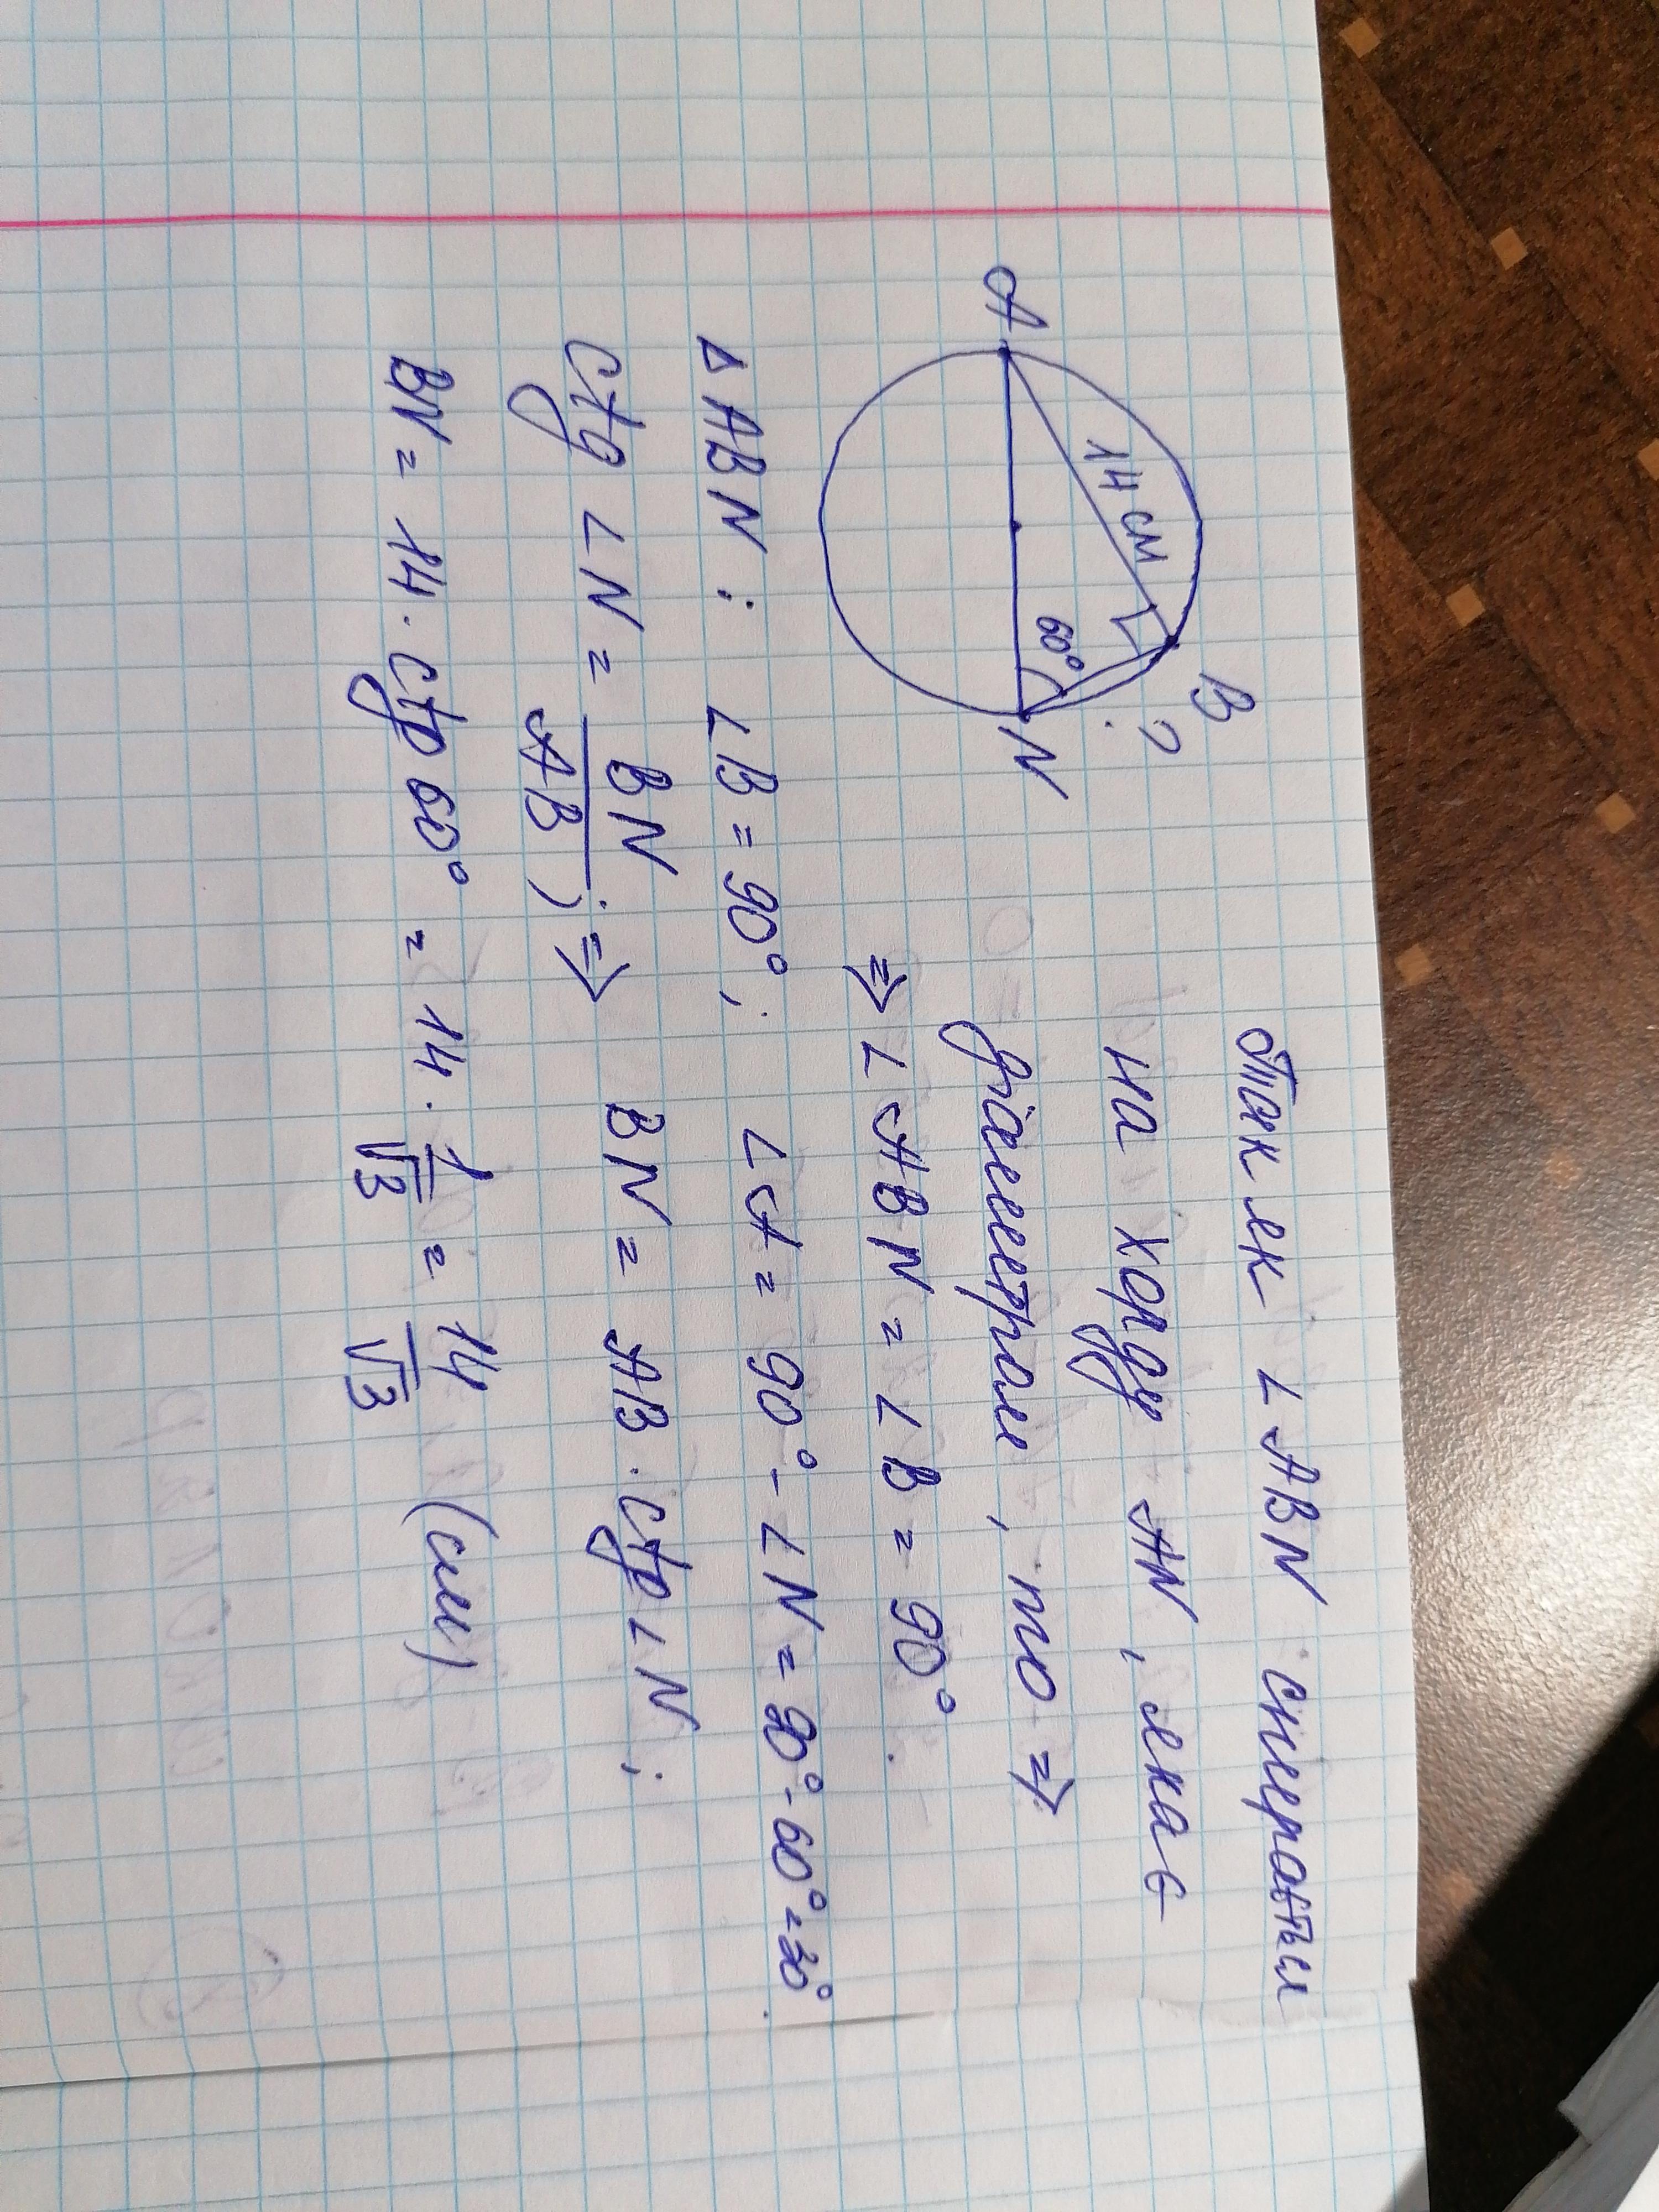 A
14 см
60°
B
?
N
Так як ∟ABN спирається
на хорду AN, яка є
діаметром, то ⇒
⇒ ∟ABN = ∟B = 90°.
△ABN : ∟B = 90°; ∟A = 90° - ∟N = 90° - 60° = 30°.
ctg ∟N = BN/AB ; ⇒ BN = AB · ctg ∟N ;
BN = 14 · ctg 60° = 14 · 1/√3 = 14/√3 (см)